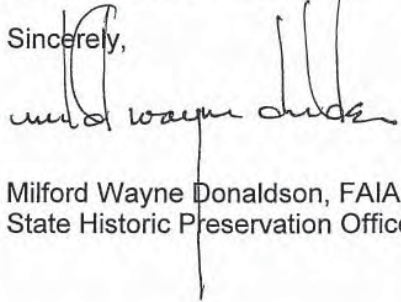 Sincerely,
wayne
Milford Wayne Donaldson, FAIA
State Historic Preservation Office